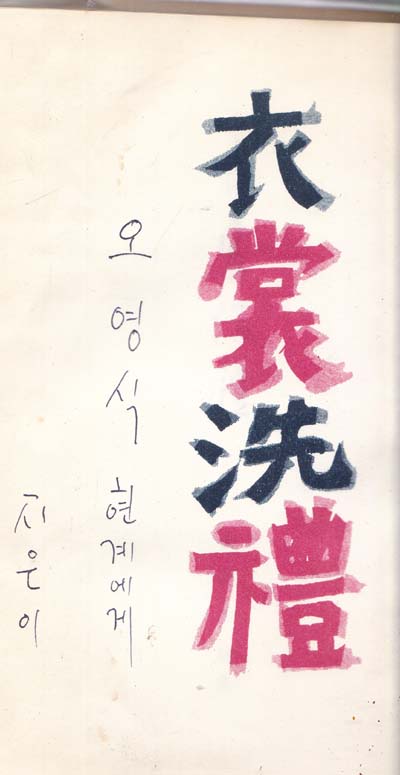 衣裳洗禮
오영식 현계에게
지은이